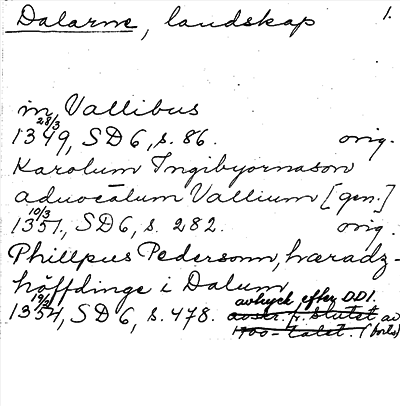 Dalarne, landskap 1.
in Vallibus
28/3
1349, SD 6, s. 86. orig.
Karolum Ingibyornason
aduocātum Vallium [gen.]
10/3
1351, SD 6, s. 282. orig.
Phillpus Pedersonn, hæradz-
höffdinge i Dalum
19/2
1354, SD 6, s. 478. avtryck efter DD1.
avskr. fr. slutet av
1700-talet. (forts)